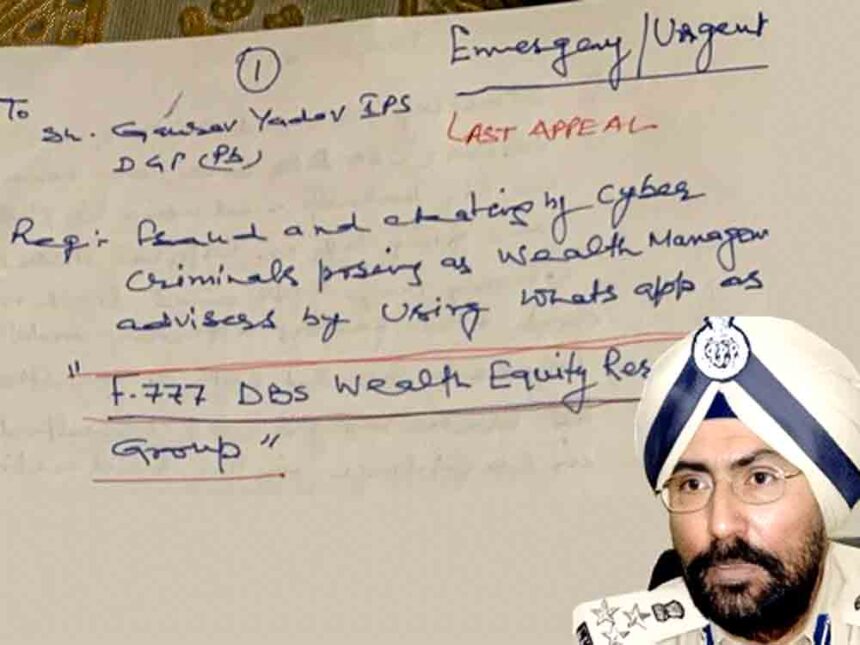 ①
Emergency/Urgent
To
Sh. Gaurav Yadav IPS
DGP (Pb)
LAST APPEAL
Reg:- Fraud and cheating by cyber
criminals posing as Wealth Managem
advisers by using Whats app as
"F.777 DBS Wealth Equity Res
Group"